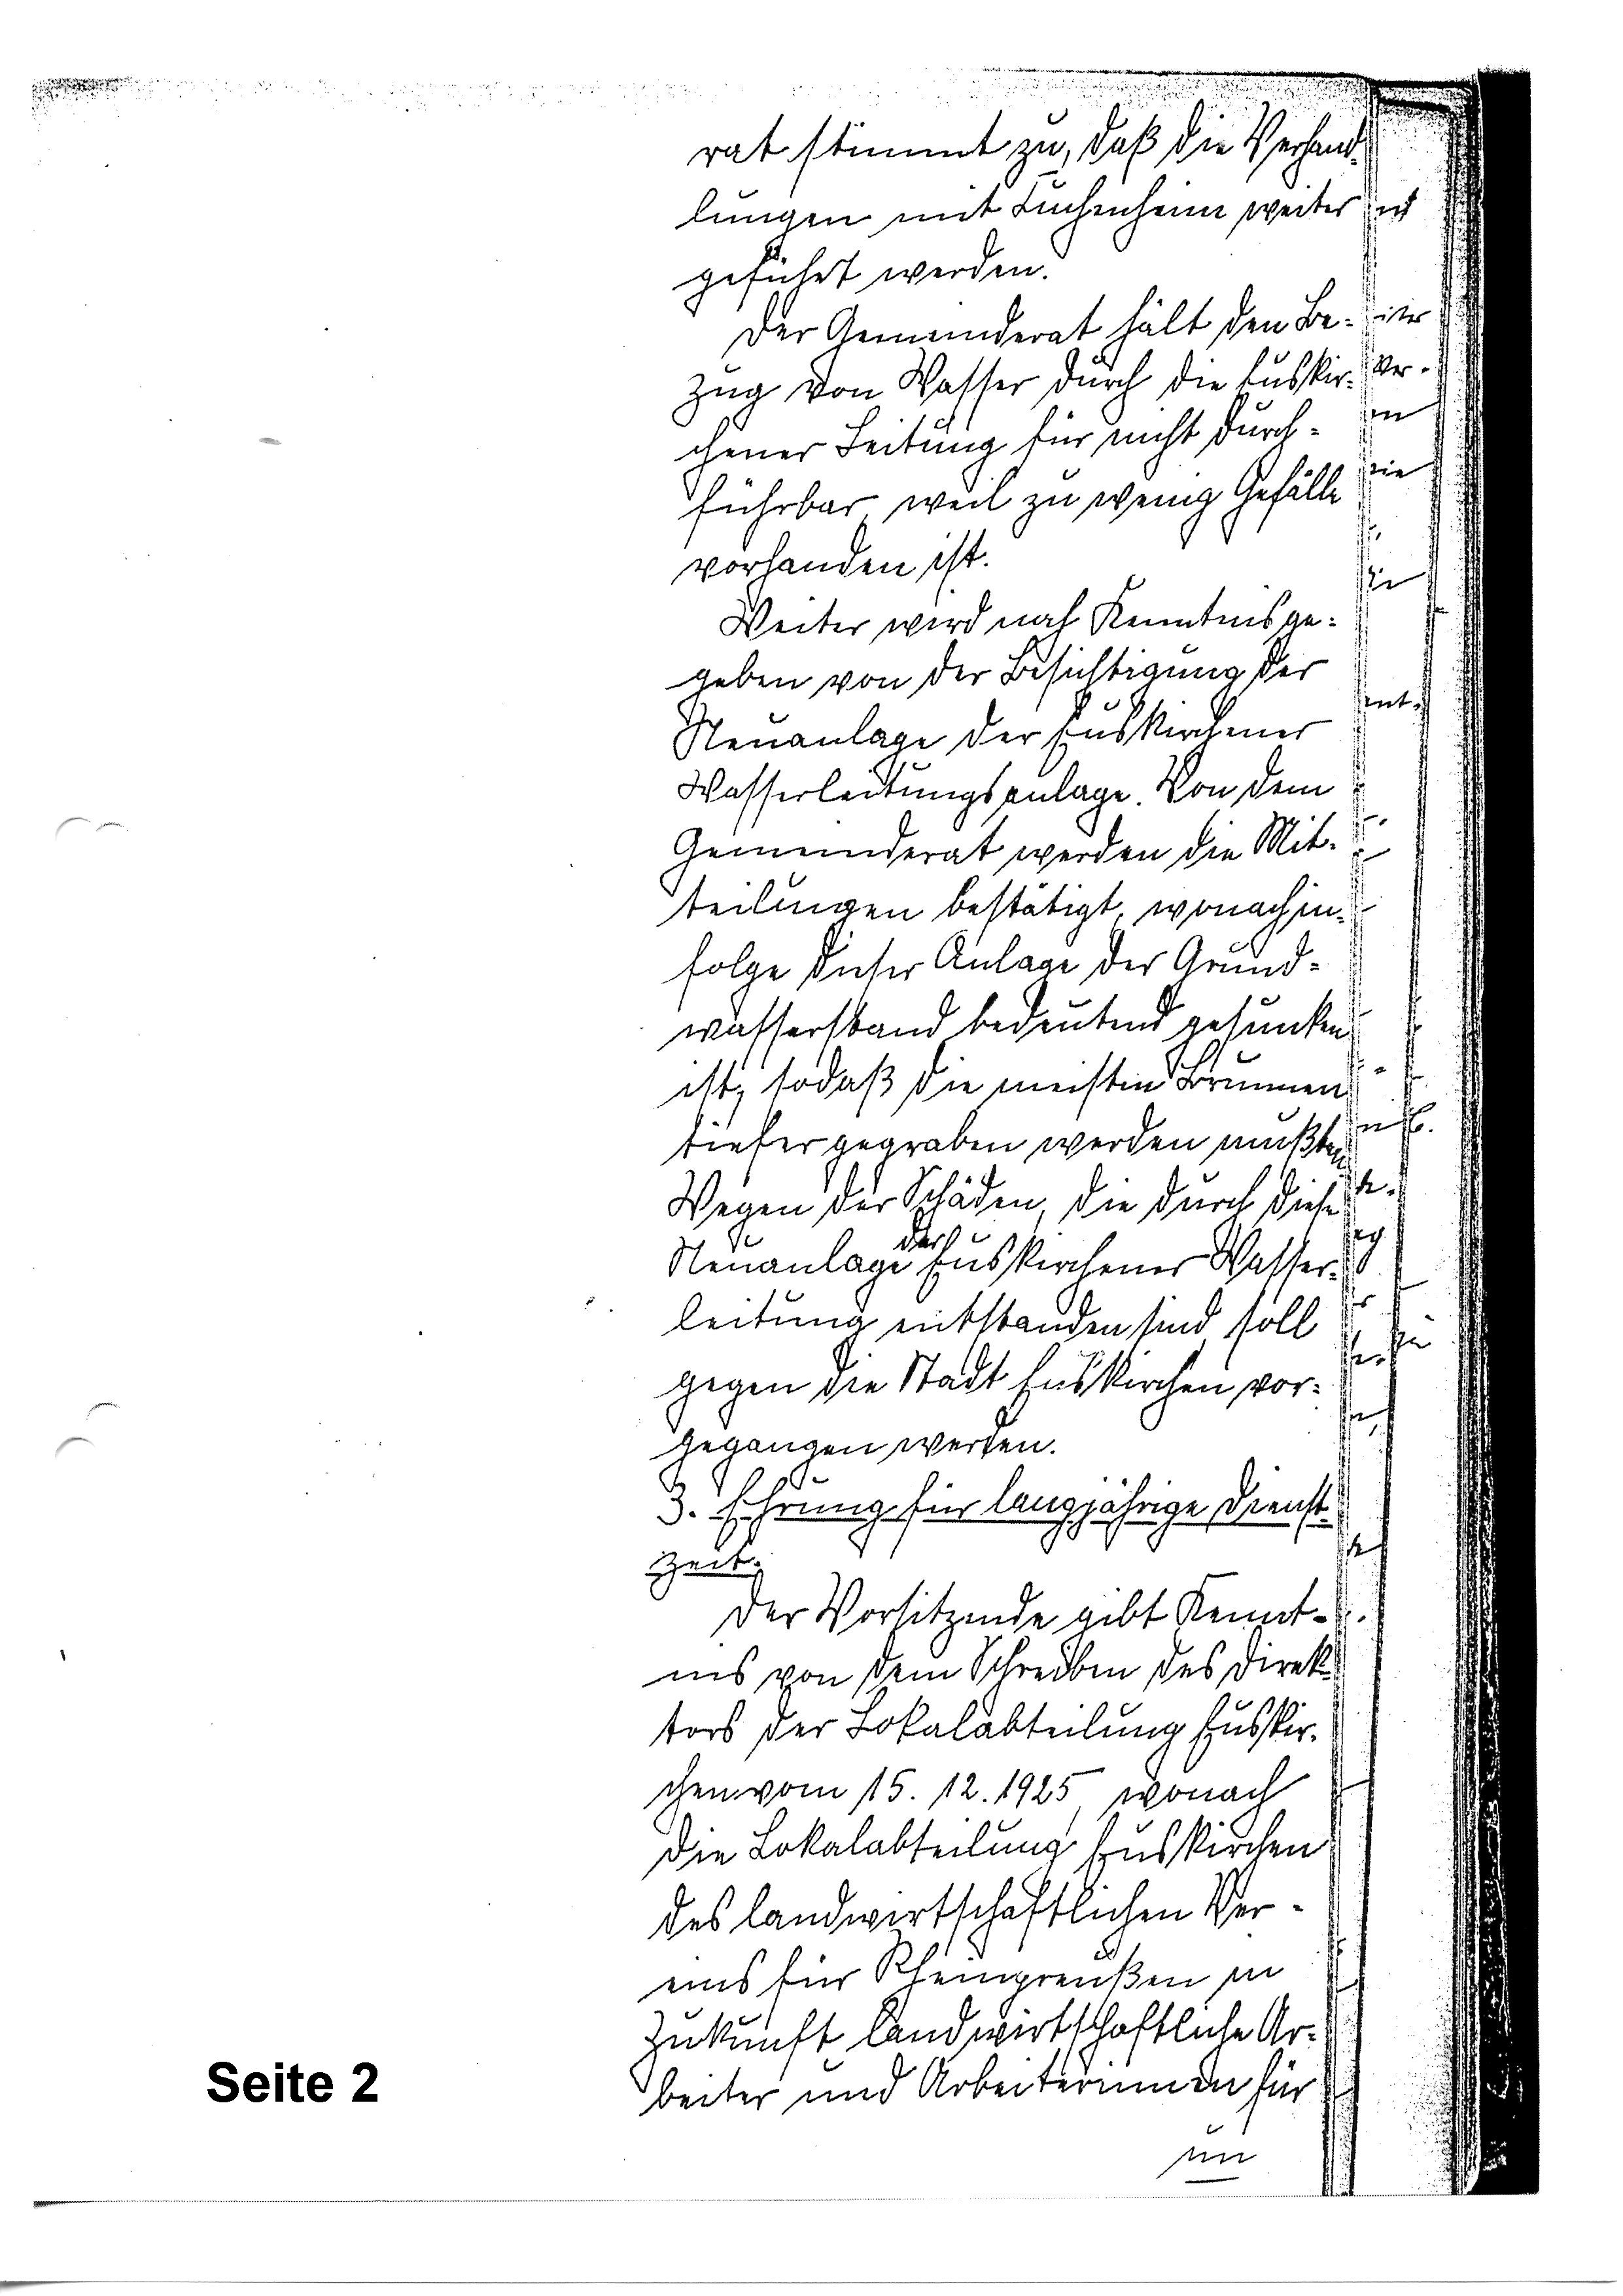 rat stimmt zu, daß die Verhand-
lungen mit Kuchenheim weiter
geführt werden.
Der Gemeinderat hält den Be-
zug von Wasser durch die Euskir-
chener Leitung für nicht durch-
führbar, weil zu wenig Gefälle
vorhanden ist.
Weiter wird noch Kenntnis ge-
geben von der Besichtigung der
Neuanlage der Euskirchener
Wasserleitungsanlage. Von dem
Gemeinderat werden die Mit-
teilungen bestätigt, wonach in-
folge dieser Anlage der Grund-
wasserstand bedeutend gesunken
ist, sodaß die meisten Brunnen
tiefer gegraben werden mußten
Wegen der Schäden, die durch diese
Neuanlage der Euskirchener Wasser-
leitung entstanden sind, soll
gegen die Stadt Euskirchen vor-
gegangen werden.
3. Ehrung für langjährige Dienst-
zeit.
Der Vorsitzende gibt Kennt-
nis von dem Schreiben des Direk-
tors der Lokalabteilung Euskir-
chen vom 15. 12. 1925, wonach
die Lokalabteilung Euskirchen
des landwirtschaftlichen Ver-
eins für Rheinpreußen in
Zukunft landwirtschaftliche Ar-
beiter und Arbeiterinnen für
Seite 2